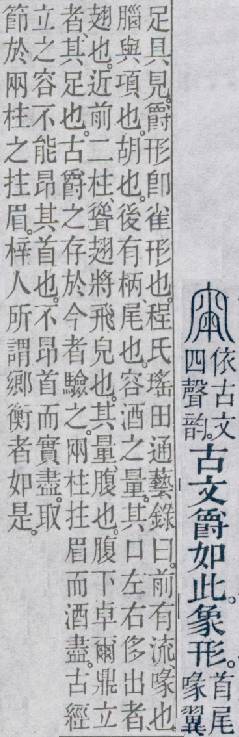 依古文
四聲韵。
古文爵如此。象形。
首尾
喙翼
足具見。爵形卽雀形也。程氏瑤田通藝錄曰。前有流。喙也。
腦與項也。胡也。後有柄。尾也。容酒之量。其口左右侈出者。
翅也。近前二柱。聳翅將飛皃也。其量。腹也。腹下卓爾鼎立
者。其足也。古爵之存於今者驗之。兩柱拄眉而酒盡。古經
立之容不能昂其首也。不昂首而實盡。取
節於兩柱之拄眉。梓人所謂鄉衡者如是。